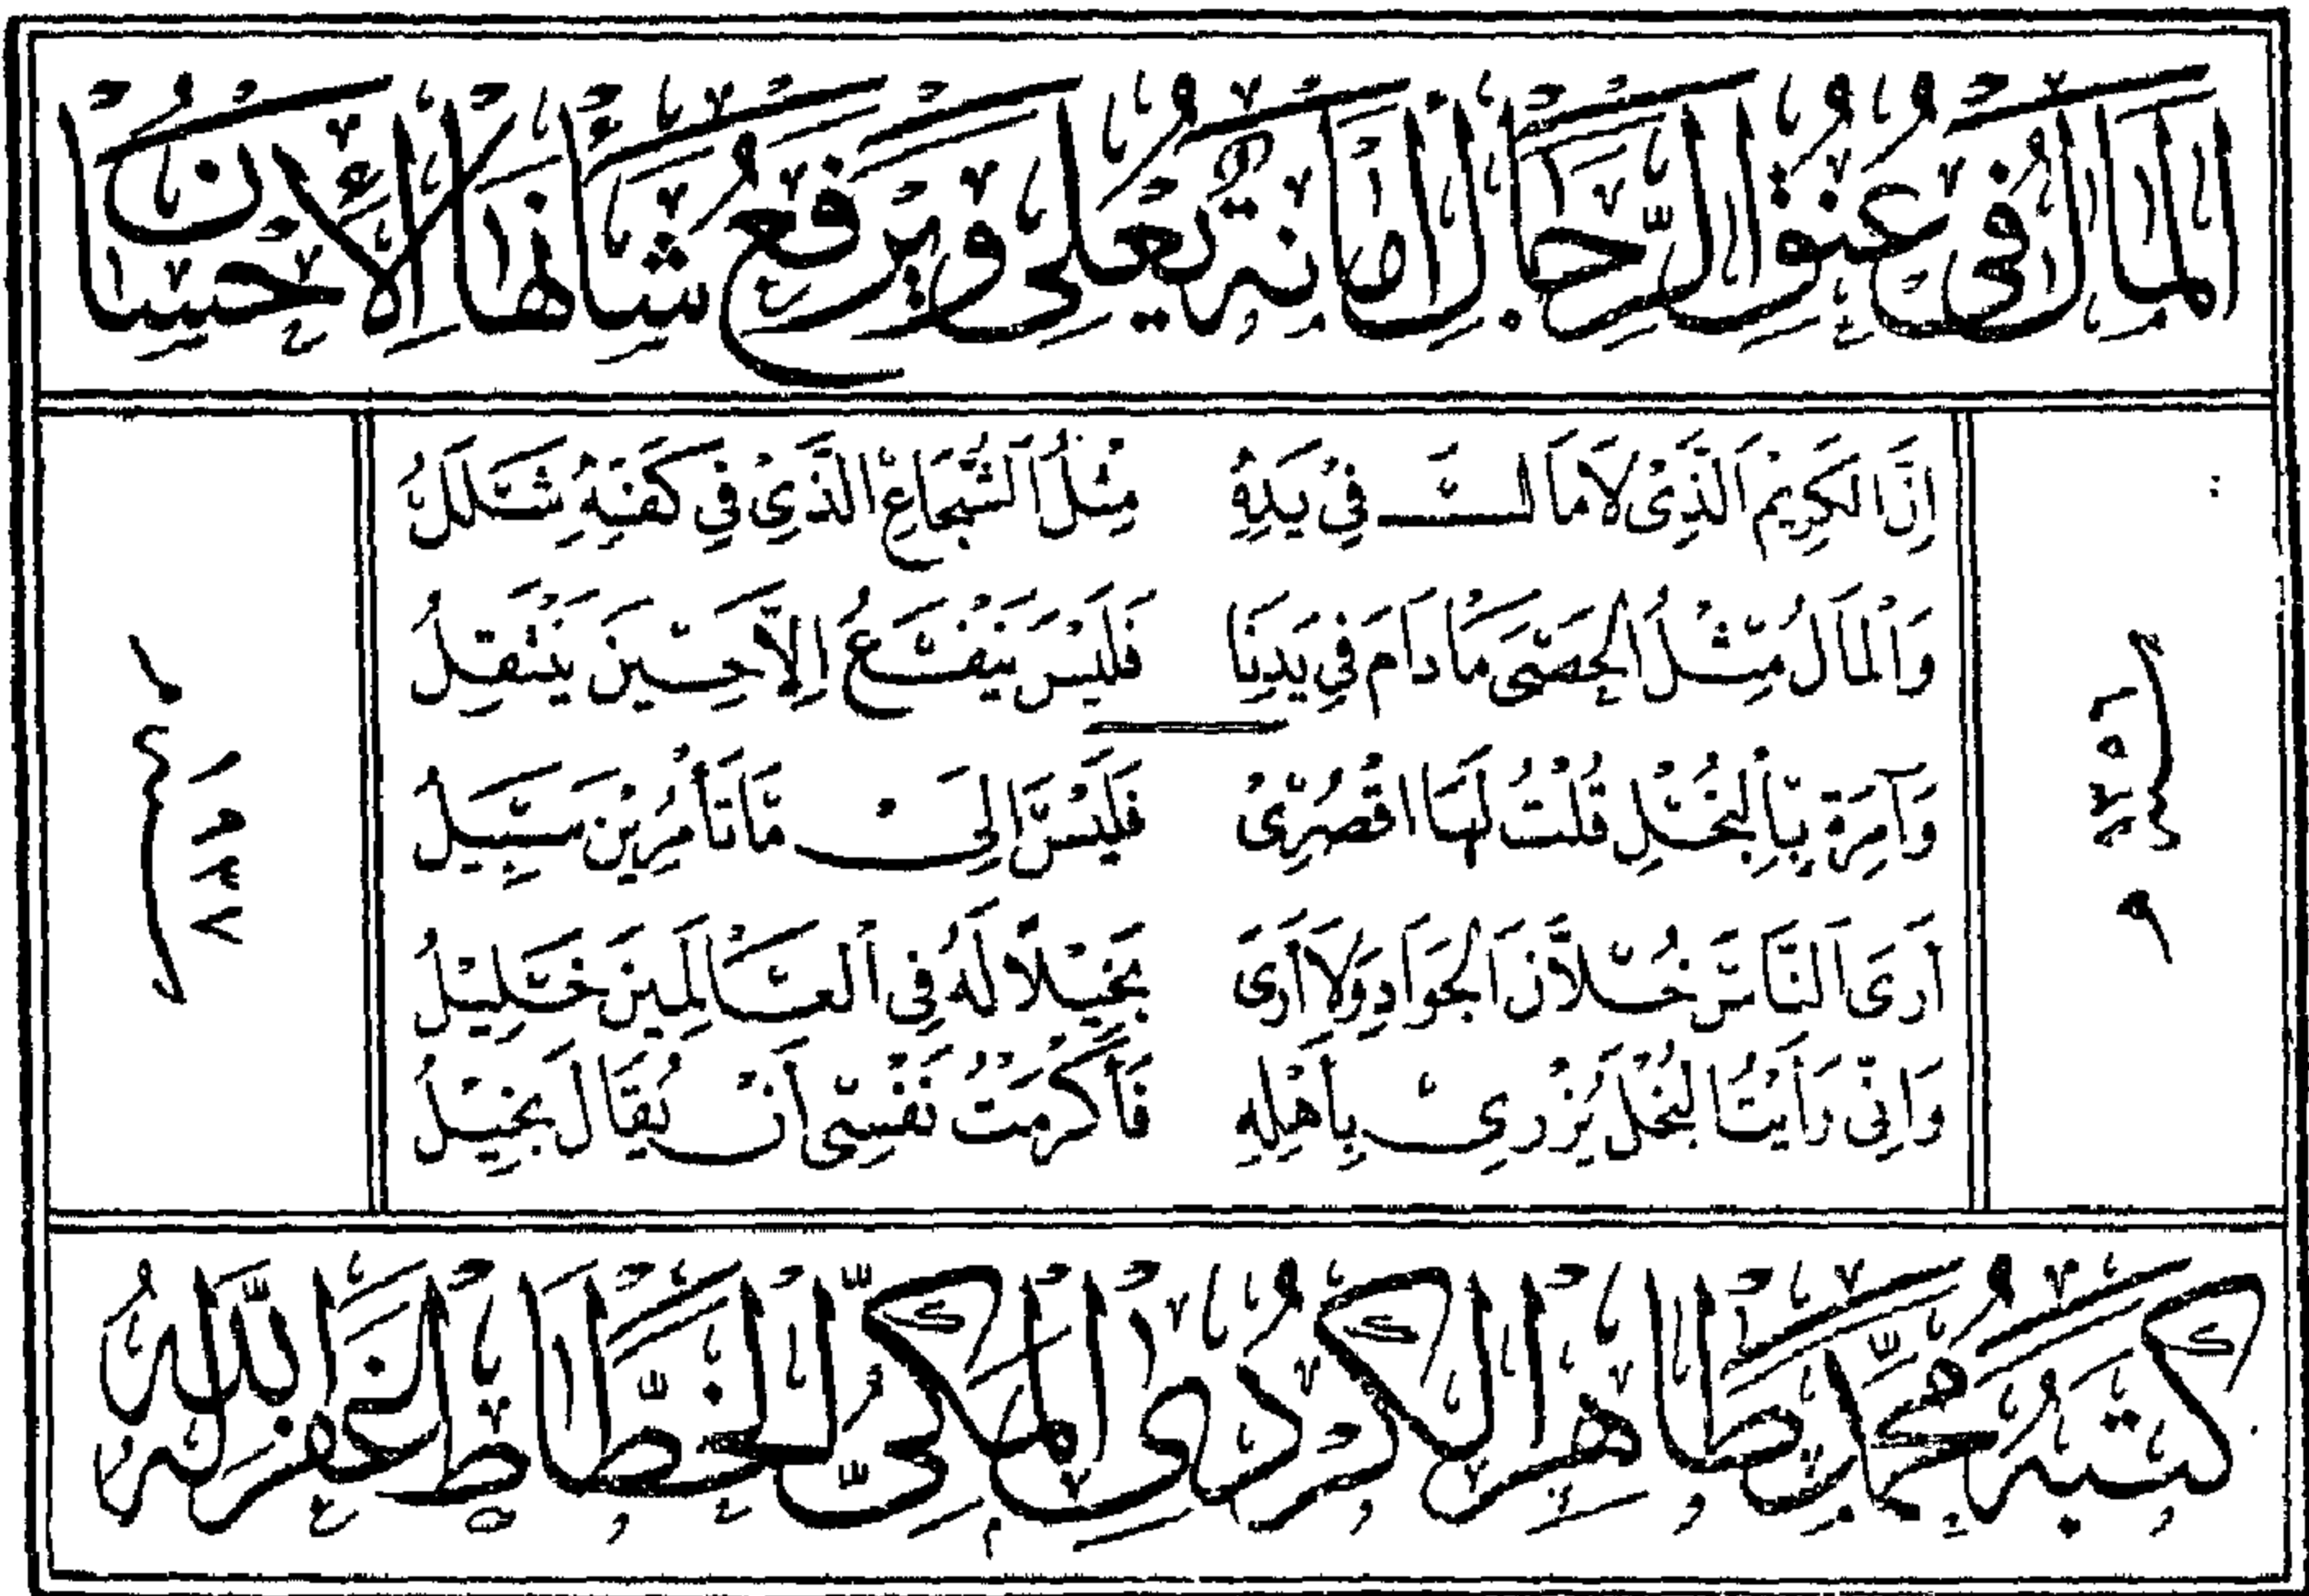 المال في عنق الرجال أمانة يعلي ويرفع شأنها الإحسان
إِنَّ الكَرِيمَ الَّذِي لَا مَالَ فِي يَدِهِ مِثْلُ الشُّجَاعِ الَّذِي فِي كَفِّهِ شَلَلُ
وَالْمَالُ مِثْلُ الحَصَى مَا دَامَ فِي يَدِنَا فَلَيْسَ يَنْفَعُ إِلَّا حِينَ يَنْتَقِلُ
وَآمِرَةٍ بِالبُخْلِ قُلْتُ لَهَا اقْصُرِي فَلَيْسَ إِلَى مَا تَأْمُرِيْنَ سَبِيلُ
أَرَى النَّاسَ خُلَّانَ الجَوَادِ وَلَا أَرَى بَخِيْلًا لَهُ فِي العَالَمِينَ خَلِيْلُ
وَإِنِّي رَأَيْتُ البُخْلَ يُزْرِي بِأَهْلِهِ فَأَكْرَمْتُ نَفْسِي أَنْ يُقَالَ بَخِيْلُ
كتبه محمد طاهر الكردي المكي الخطاط غفر الله له